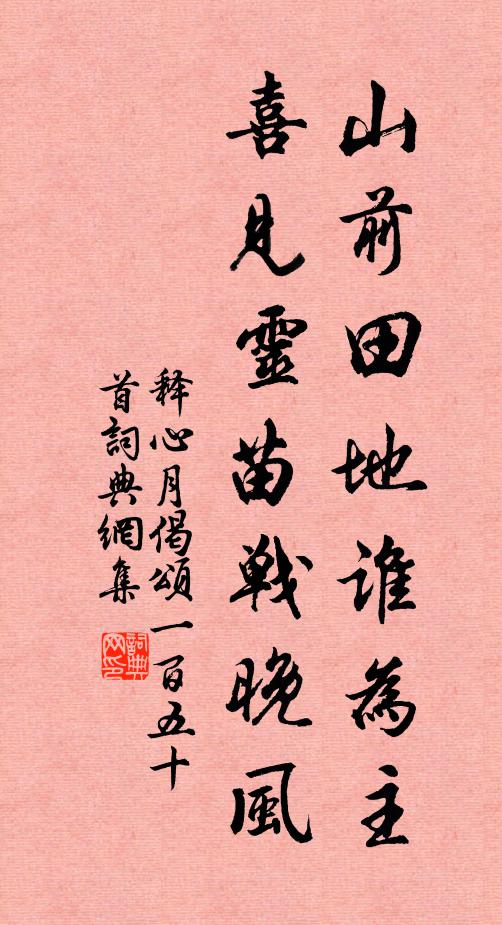 山前田地谁為主
喜見靈苗戰晚風
释心月偈頌一百五十
首詞典網集
詞典網印